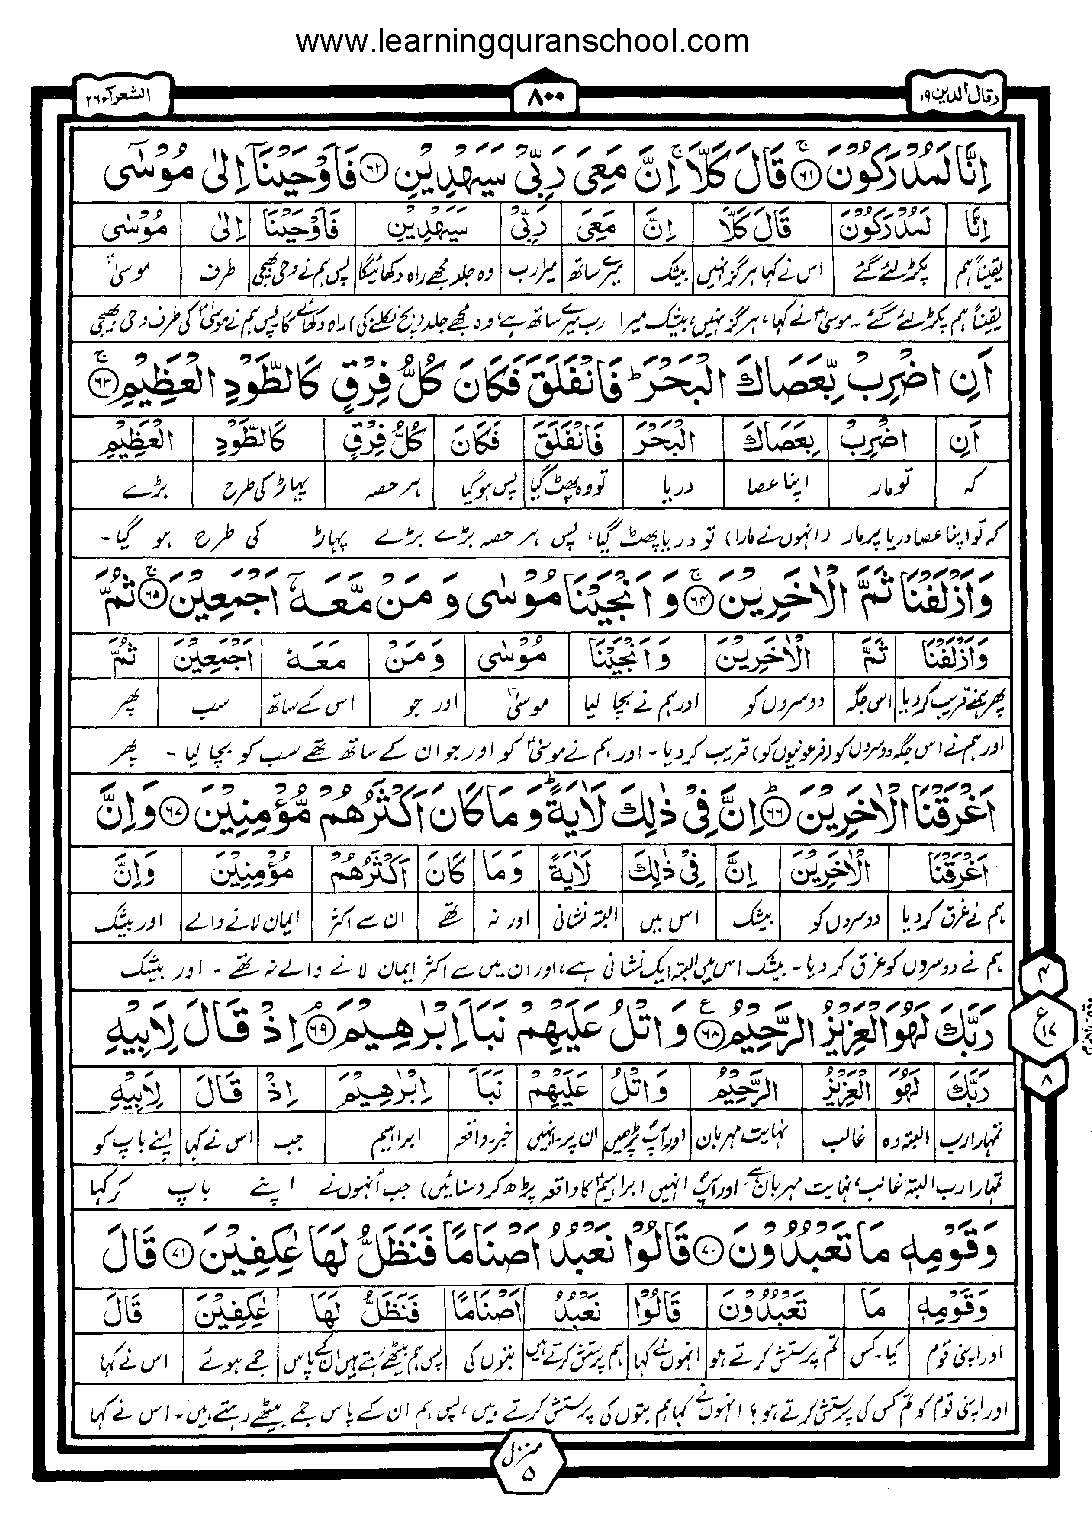 www.learningquranschool.com
وقال الذین ۱۹
۸۰۰
الشعرآء ۲۶
اِنَّا لَمُدْرَكُوْنَ ﴿۶۱﴾ قَالَ كَلَّا ۚ اِنَّ مَعِیَ رَبِّیْ سَیَهْدِیْنِ ﴿۶۲﴾ فَاَوْحَیْنَاۤ اِلٰى مُوْسٰۤى
اِنَّا لَمُدْرَكُوْنَ قَالَ كَلَّا اِنَّ مَعِیَ رَبِّیْ سَیَهْدِیْنِ فَاَوْحَیْنَا اِلٰى مُوْسٰى
یقیناً ہم پکڑ لئے گئے اس نے کہا ہرگز نہیں بیشک میرے ساتھ میرا رب وہ جلد مجھے راہ دکھائیگا پس ہم نے وحی بھیجی طرف موسیٰؑ
یقیناً ہم پکڑ لئے گئے۔ موسیٰؑ نے کہا، ہرگز نہیں، بیشک میرا رب میرے ساتھ ہے، وہ مجھے جلد (بچ نکلنے کی) راہ دکھائے گا پس ہم نے موسیٰؑ کی طرف وحی بھیجی
اَنِ اضْرِبْ بِّعَصَاكَ الْبَحْرَ ؕ فَانْفَلَقَ فَكَانَ كُلُّ فِرْقٍ كَالطَّوْدِ الْعَظِیْمِ ﴿۶۳﴾
اَنِ اضْرِبْ بِعَصَاكَ الْبَحْرَ فَانْفَلَقَ فَكَانَ كُلُّ فِرْقٍ كَالطَّوْدِ الْعَظِیْمِ
کہ تو مار اپنا عصا دریا تو وہ پھٹ گیا پس ہوگیا ہر حصہ پہاڑ کی طرح بڑے
کہ تو اپنا عصا دریا پر مار (انہوں نے مارا) تو دریا پھٹ گیا، پس ہر حصہ بڑے بڑے پہاڑ کی طرح ہو گیا۔
وَاَزْلَفْنَا ثَمَّ الْاٰخَرِیْنَ ﴿۶۴﴾ وَاَنْجَیْنَا مُوْسٰى وَمَنْ مَّعَهٗۤ اَجْمَعِیْنَ ﴿۶۵﴾ ثُمَّ
وَاَزْلَفْنَا ثَمَّ الْاٰخَرِیْنَ وَاَنْجَیْنَا مُوْسٰى وَمَنْ مَعَهٗ اَجْمَعِیْنَ ثُمَّ
پھر ہم نے قریب کردیا اس جگہ دوسروں کو اور ہم نے بچا لیا موسیٰؑ اور جو اس کے ساتھ سب پھر
اور ہم نے اس جگہ دوسروں کو (فرعونیوں کو) قریب کر دیا۔ اور ہم نے موسیٰؑ کو اور جو ان کے ساتھ تھے سب کو بچا لیا۔ پھر
اَغْرَقْنَا الْاٰخَرِیْنَ ﴿۶۶﴾ اِنَّ فِیْ ذٰلِكَ لَاٰیَةً ؕ وَمَا كَانَ اَكْثَرُهُمْ مُّؤْمِنِیْنَ ﴿۶۷﴾ وَاِنَّ
اَغْرَقْنَا الْاٰخَرِیْنَ اِنَّ فِیْ ذٰلِكَ لَاٰیَةً وَمَا كَانَ اَكْثَرُهُمْ مُؤْمِنِیْنَ وَاِنَّ
ہم نے غرق کردیا دوسروں کو بیشک اس میں البتہ نشانی اور نہ تھے ان سے اکثر ایمان لانے والے اور بیشک
ہم نے دوسروں کو غرق کر دیا۔ بیشک اس میں البتہ ایک نشانی ہے، اور ان میں سے اکثر ایمان لانے والے نہ تھے۔ اور بیشک
رَبَّكَ لَهُوَ الْعَزِیْزُ الرَّحِیْمُ ﴿۶۸﴾ وَاتْلُ عَلَیْهِمْ نَبَاَ اِبْرٰهِیْمَ ﴿۶۹﴾ اِذْ قَالَ لِاَبِیْهِ
رَبَّكَ لَهُوَ الْعَزِیْزُ الرَّحِیْمُ وَاتْلُ عَلَیْهِمْ نَبَاَ اِبْرٰهِیْمَ اِذْ قَالَ لِاَبِیْهِ
تمہارا رب البتہ وہ غالب نہایت مہربان اور آپؐ پڑھیں ان پر۔ انہیں خبر۔ واقعہ ابراہیم جب اس نے کہا اپنے باپ کو
تمہارا رب البتہ غالب، نہایت مہربان ہے اور آپؐ انہیں ابراہیمؑ کا واقعہ پڑھ کر (سنائیں) جب اُنہوں نے اپنے باپ کر کہا
وَقَوْمِهٖ مَا تَعْبُدُوْنَ ﴿۷۰﴾ قَالُوْا نَعْبُدُ اَصْنَامًا فَنَظَلُّ لَهَا عٰكِفِیْنَ ﴿۷۱﴾ قَالَ
وَقَوْمِهٖ مَا تَعْبُدُوْنَ قَالُوْا نَعْبُدُ اَصْنَامًا فَنَظَلُّ لَهَا عٰكِفِیْنَ قَالَ
اور اپنی قوم کیا۔ کس تم پرستش کرتے ہو انہوں نے کہا ہم پرستش کرتے ہیں بتوں کی پس ہم بیٹھے رہتے ہیں ان کے پاس جمے ہوئے اس نے کہا
اور اپنی قوم کو تم کس کی پرستش کرتے ہو؟ انہوں نے کہا ہم بتوں کی پرستش کرتے ہیں، پس ہم ان کے پاس جمے بیٹھے رہتے ہیں۔ اس نے کہا
۴
ع ۱۷
۸
منزل ۵